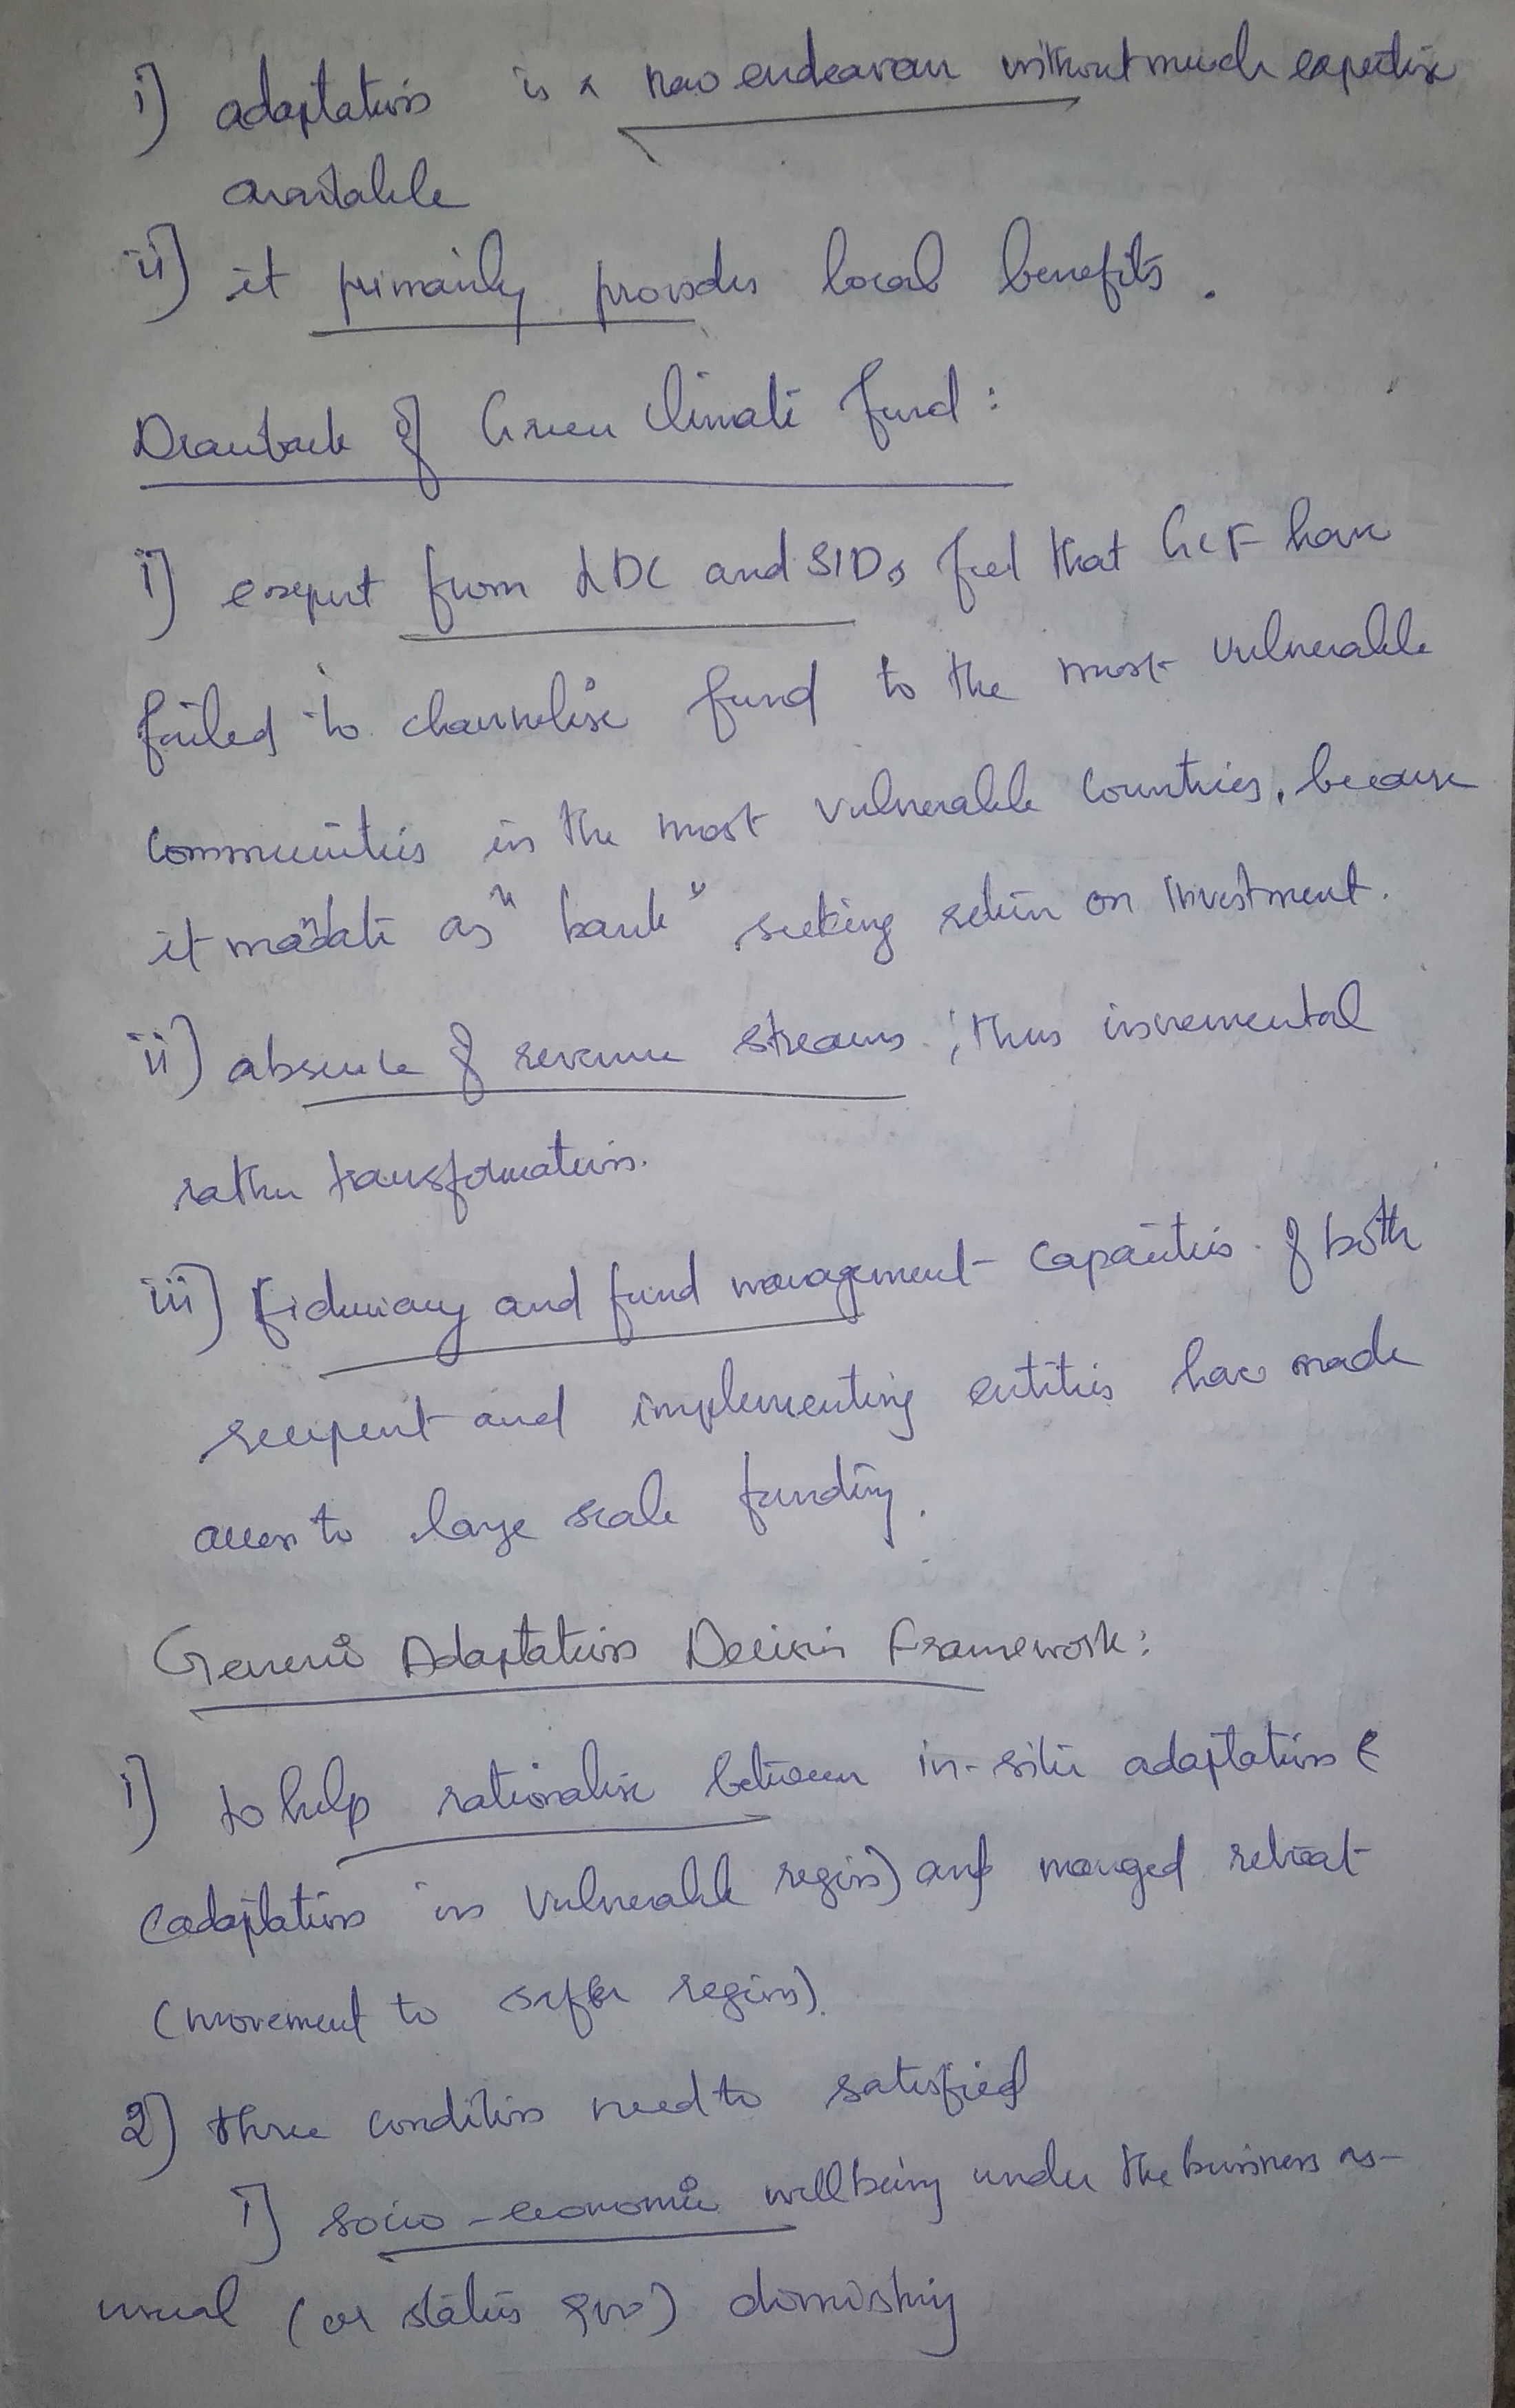 i) adaptation is a new endeavour without much expertise
available
ii) it primarily provides local benefits.
Drawback of Green Climate Fund:
i) expert from LDC and SIDs feel that GCF have
failed to channelise fund to the most vulnerable
communities in the most vulnerable countries, because
it mandate as "bank" seeking return on investment.
ii) absence of revenue streams; thus incremental
rather transformation.
iii) fiduciary and fund management capacities of both
recipent and implementing entities have made
access to large scale funding.
Generic Adaptation Decision Framework:
i) to help rationalise between in-situ adaptation (
(adaptation in vulnerable region) and managed retreat
(movement to safer region).
2) three condition need to satisfied
i) socio-economic wellbeing under the business as-
usual (or status quo) diminishing